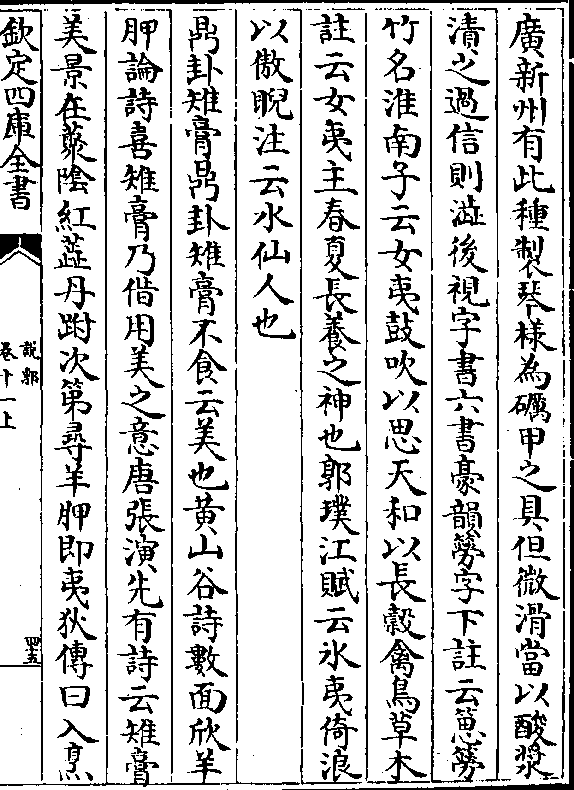 廣新州有此種製琴樣為礪甲之具但微滑當以酸漿
漬之過信則澁後視字書六書豪韻簩字下註云䓗簩
竹名淮南子云女夷鼓吹以思天和以長穀禽鳥草木
註云女夷主春夏長養之神也郭璞江賦云氷夷倚浪
以傲睨注云水仙人也
鼎卦雉膏鼎卦雉膏不食云美也黄山谷詩數面欣羊
胛論詩喜雉膏乃借用美之意唐張演先有詩云雉膏
美景在藂陰紅蕋丹跗次第尋羊胛即夷狄傳曰入烹
欽定四庫全書
說郛
卷十一上
四十五